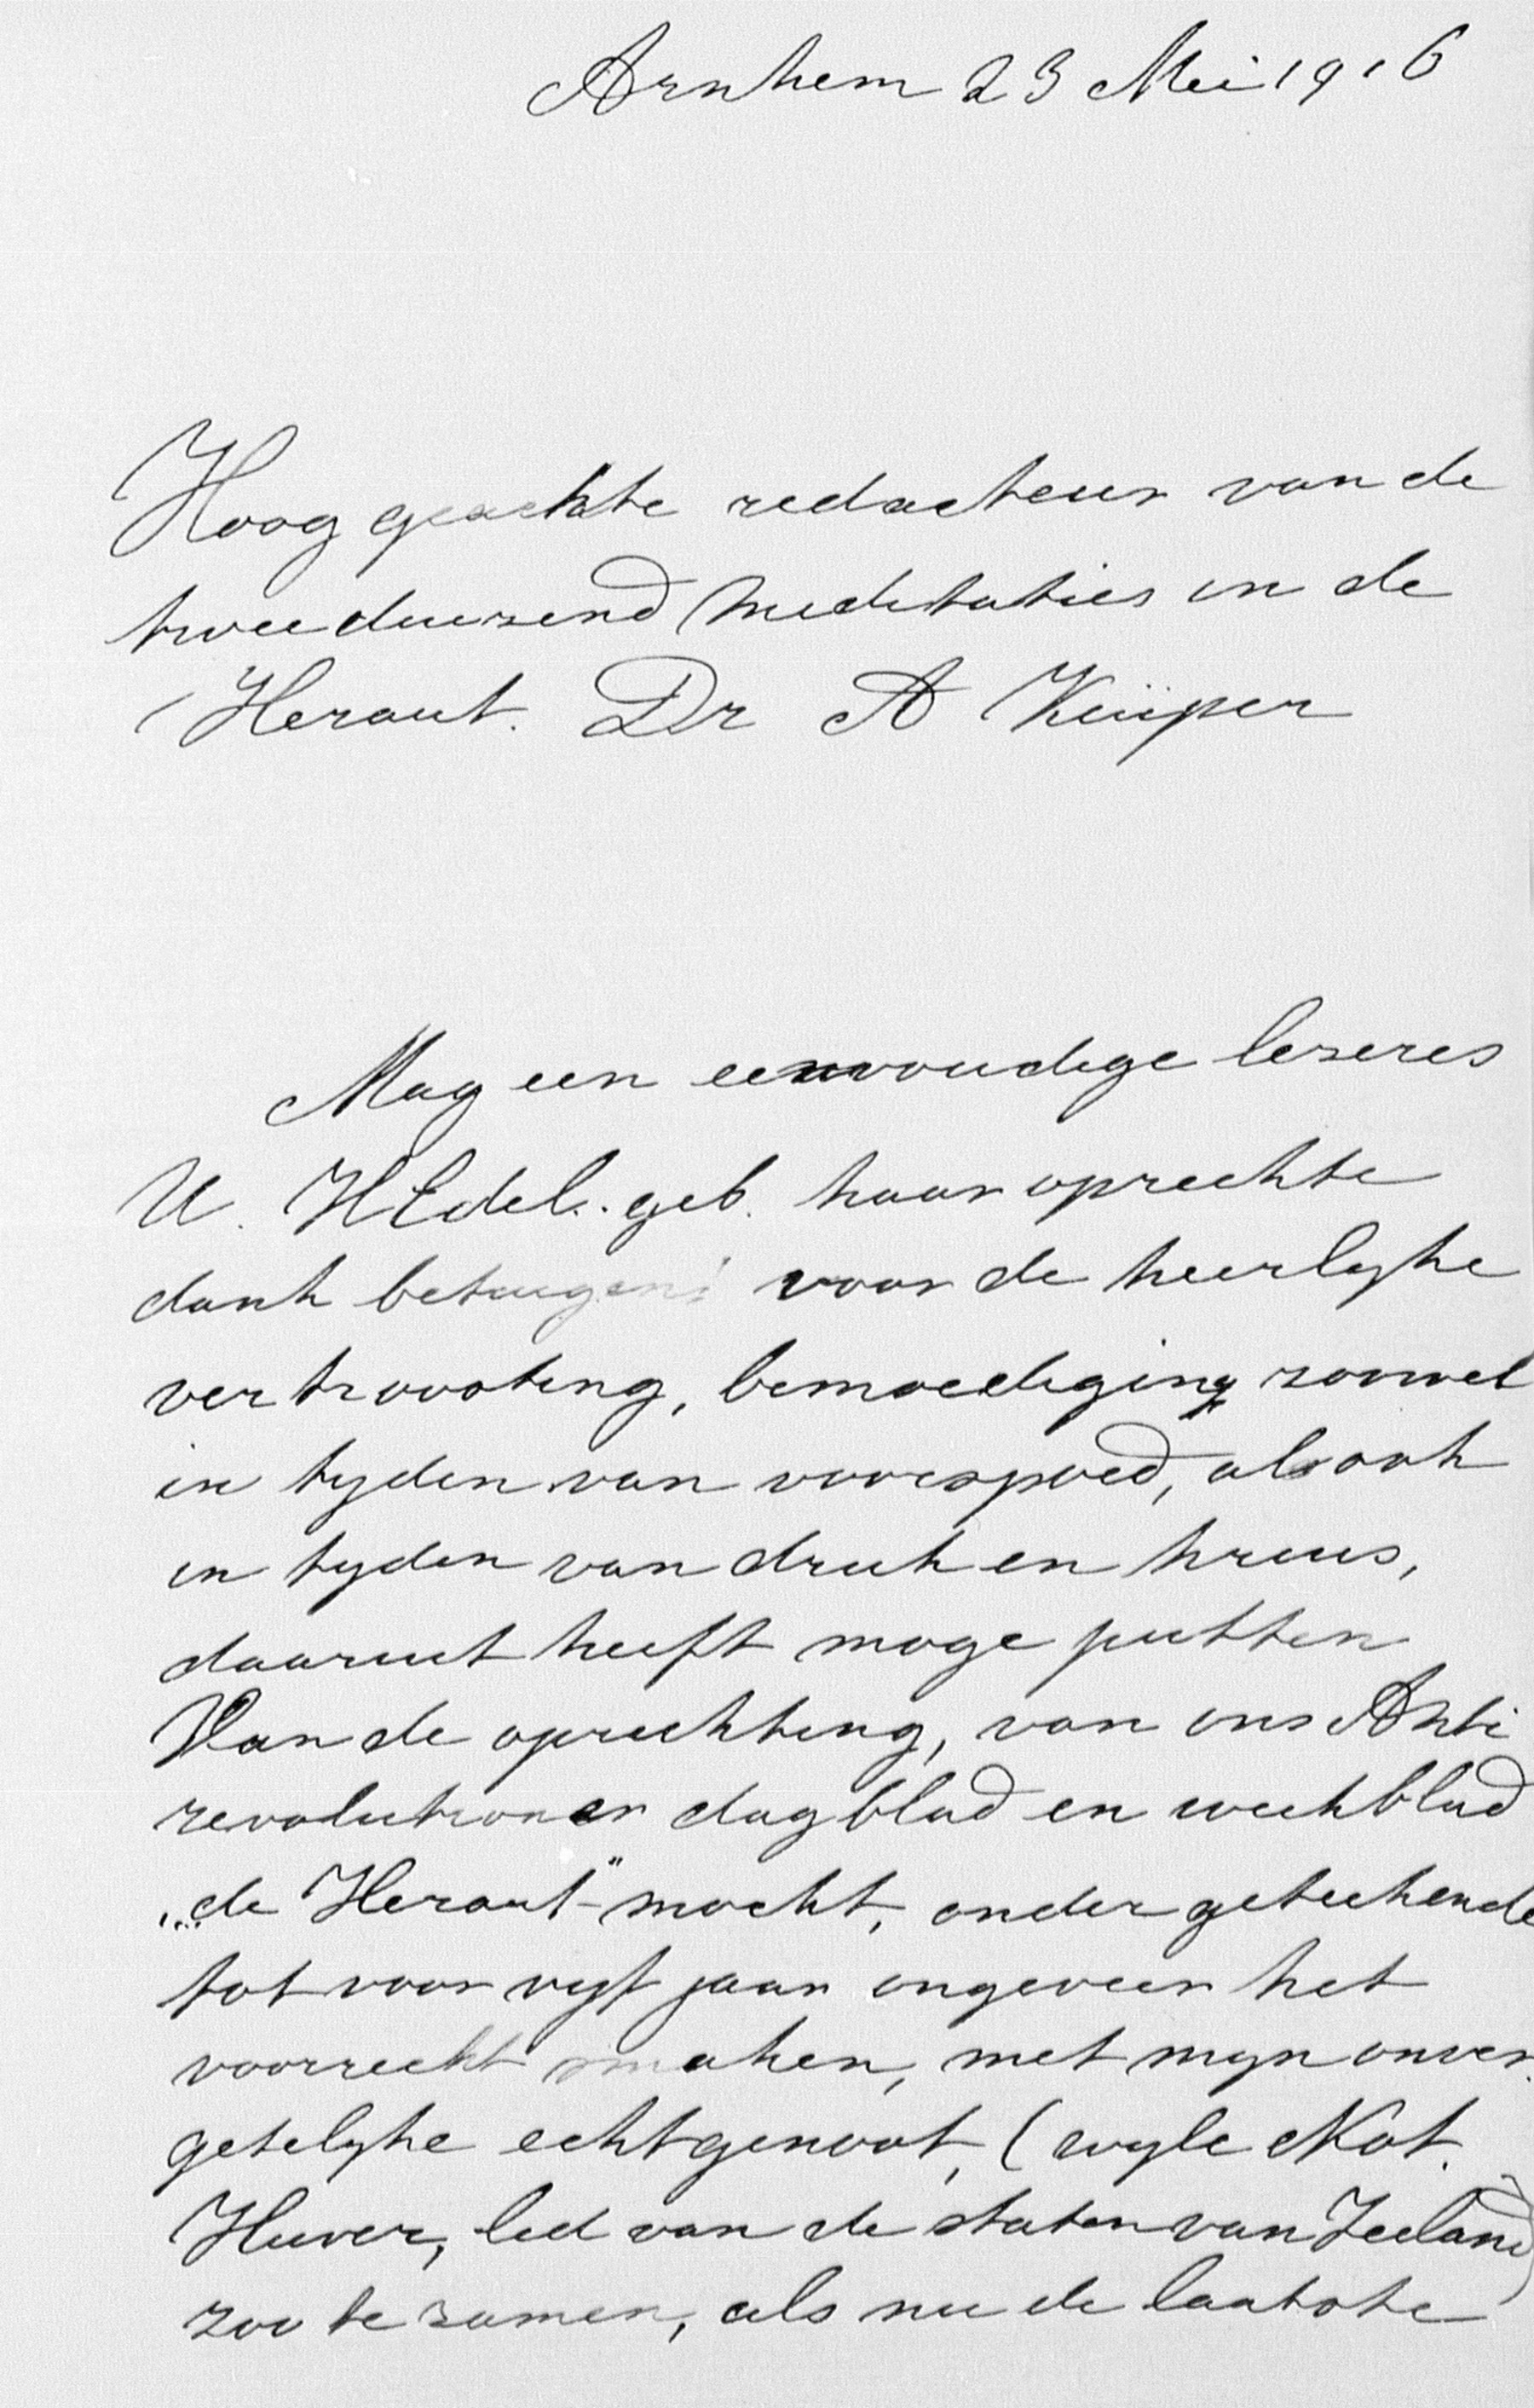 Arnhem 23 Mei 1916
Hoog geachte redacteur van de
tweeduezend meditaties in de
Heraut. Dr A Kuijper
Mag een eenvoudige lezeres
U. HEdel. geb. haar oprechte
dank betuigen voor de heerlyke
vertroosting, bemoediging zoowel
in tyden van voorspoed, als ook
in tyden van druk en kruis,
daaruit heeft moge putten
Van de oprichting, van ons Anti
revolutionair dagblad en weekblad
„de Heraut" mocht, ondergeteekende
tot voor vyf jaar ongeveer het
voorrecht smaken, met myn onver
getelyke echtgenoot, (wyle Not.
Huver, lid van de staten van Zeeland)
zoo te zamen, als nu de laatste